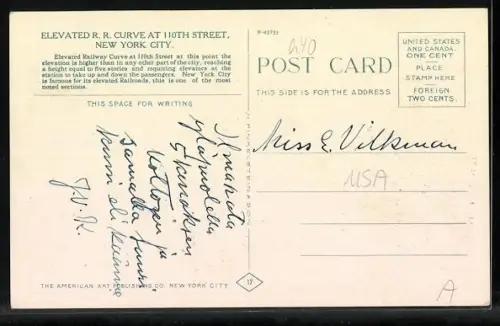 ELEVATED R. R. CURVE AT 110TH STREET,
NEW YORK CITY.
Elevated Railway Curve at 110th Street at this point the
elevation is higher than in any other part of the city, reaching
a height equal to five stories and requiring elevators at the
station to take up and down the passengers. New York City
is famous for its elevated Railroads, this is one of the most
noted sections.
THIS SPACE FOR WRITING
Ilmanata
yläpuolella
kattojen ja
samalla suuri
kuin eli käännö
J.V.K.
THE AMERICAN ART PUBLISHING CO. NEW YORK CITY
17
R-43733
240
POST CARD
THIS SIDE IS FOR THE ADDRESS
UNITED STATES
AND CANADA
ONE CENT
PLACE
STAMP HERE
FOREIGN
TWO CENTS.
Miss E. Vilkman
USA
A